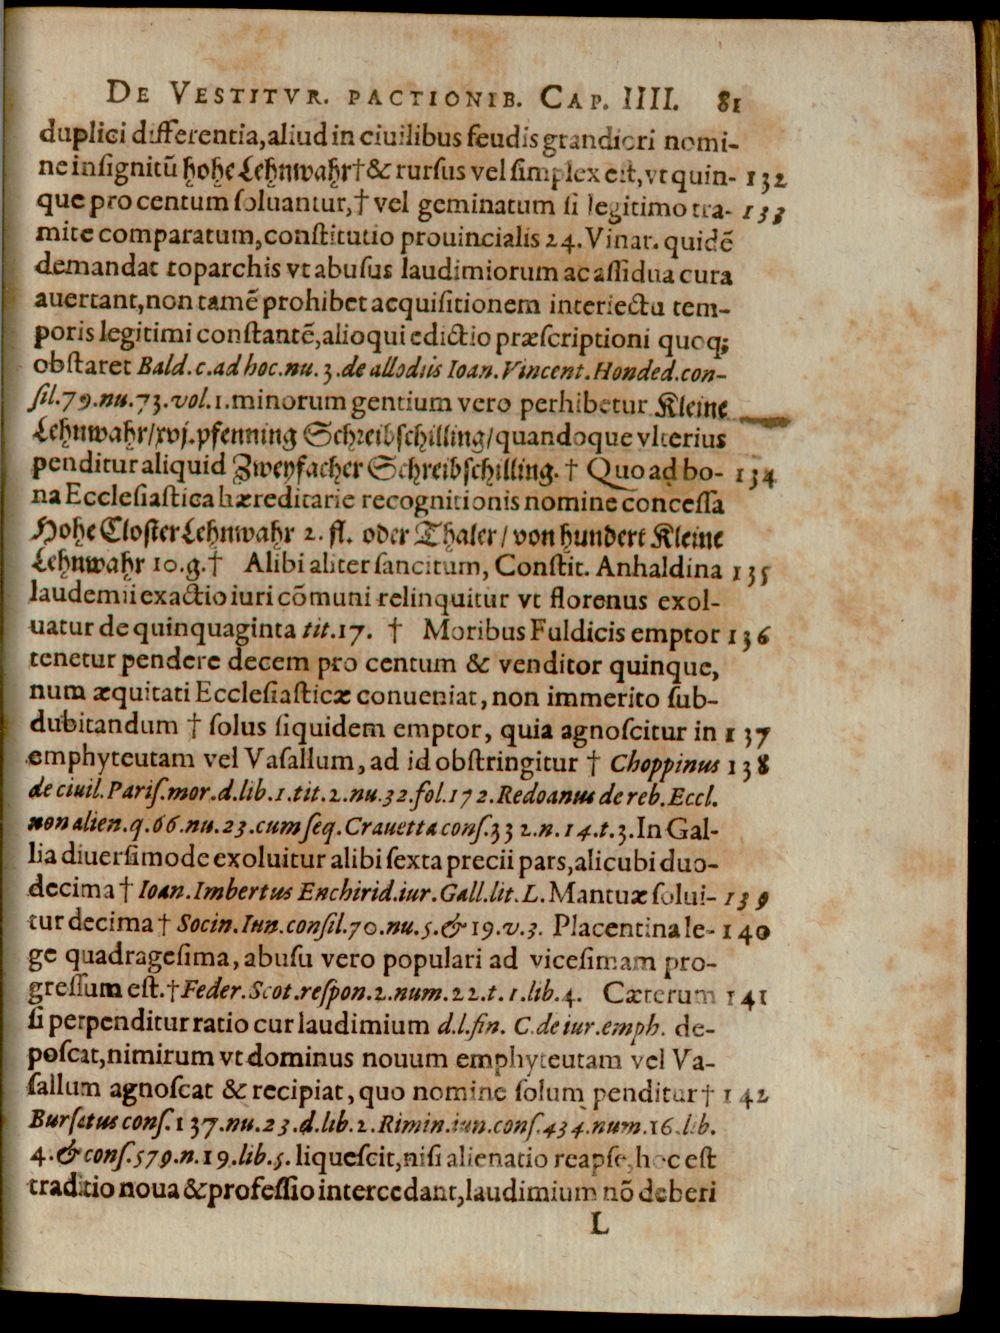 De Vestitvr. pactionib. Cap. IIII. 81
duplici differentia, aliud in ciuilibus feudis grandiori nomi-
ne insignitū hohe Lehnwahr † & rursus vel simplex est, vt quin- 132
que pro centum soluantur, † vel geminatum si legitimo tra- 133
mite comparatum, constitutio prouincialis 24. Vinar. quidē
demandat toparchis vt abusus laudimiorum ac assidua cura
auertant, non tamē prohibet acquisitionem interiectu tem-
poris legitimi constantē, alioqui edictio præscriptioni quoq;
obstaret Bald. c. ad hoc. nu. 3. de allodiis Ioan. Vincent. Honded. con-
sil. 79. nu. 73. vol. 1. minorum gentium vero perhibetur Kleine
Lehnwahr/xvj. pfenning Schreibschilling/ quandoque vlterius
penditur aliquid Zweyfacher Schreibschilling. † Quo ad bo- 134
na Ecclesiastica hæreditarie recognitionis nomine concessa
Hohe Closter Lehnwahr 2. fl. oder Thaler/ von hundert Kleine
Lehnwahr 10. g. † Alibi aliter sancitum, Constit. Anhaldina 135
laudemii exactio iuri cōmuni relinquitur vt florenus exol-
uatur de quinquaginta tit. 17. † Moribus Fuldicis emptor 136
tenetur pendere decem pro centum & venditor quinque,
num æquitati Ecclesiasticæ conueniat, non immerito sub-
dubitandum † solus siquidem emptor, quia agnoscitur in 137
emphyteutam vel Vasallum, ad id obstringitur † Choppinus 138
de ciuil. Paris. mor. d. lib. 1. tit. 2. nu. 32. fol. 172. Redoanus de reb. Eccl.
non alien. q. 66. nu. 23. cum seq. Crauetta cons. 332. n. 14. t. 3. In Gal-
lia diuersimode exoluitur alibi sexta precii pars, alicubi duo-
decima † Ioan. Imbertus Enchirid. iur. Gall. lit. L. Mantuæ solui- 139
tur decima † Socin. Iun. consil. 70. nu. 5. & 19. v. 3. Placentina le- 140
ge quadragesima, abusu vero populari ad vicesimam pro-
gressum est. † Feder. Scot. respon. 2. num. 22. t. 1. lib. 4. Cæterum 141
si perpenditur ratio cur laudimium d. l. fin. C. de iur. emph. de-
poscat, nimirum vt dominus nouum emphyteutam vel Va-
sallum agnoscat & recipiat, quo nomine solum penditur † 142
Bursatus cons. 137. nu. 23. d. lib. 2. Rimin. iun. cons. 434. num. 16. lib.
4. & cons. 579. n. 19. lib. 5. liquescit, nisi alienatio reapse, hoc est
traditio noua & professio intercedant, laudimium nō deberi
L